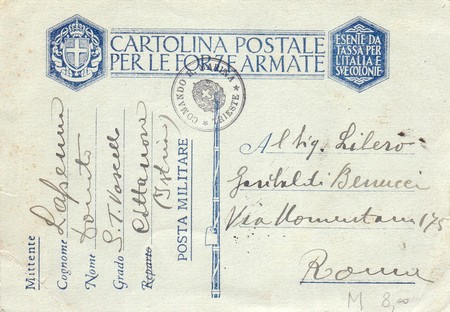 CARTOLINA POSTALE
PER LE FORZE ARMATE
ESENTE DA
TASSA PER
L'ITALIA E
SVE COLONIE
COMANDO MARINA
TRIESTE
Mittente
Cognome Lapenna
Nome Donato
Grado S.T. Vascello
Reparto Cittanova
(Istria)
POSTA MILITARE
Al Sig. Libero
Garibaldi Benucci
Via Nomentana 175
Roma
M 8,00